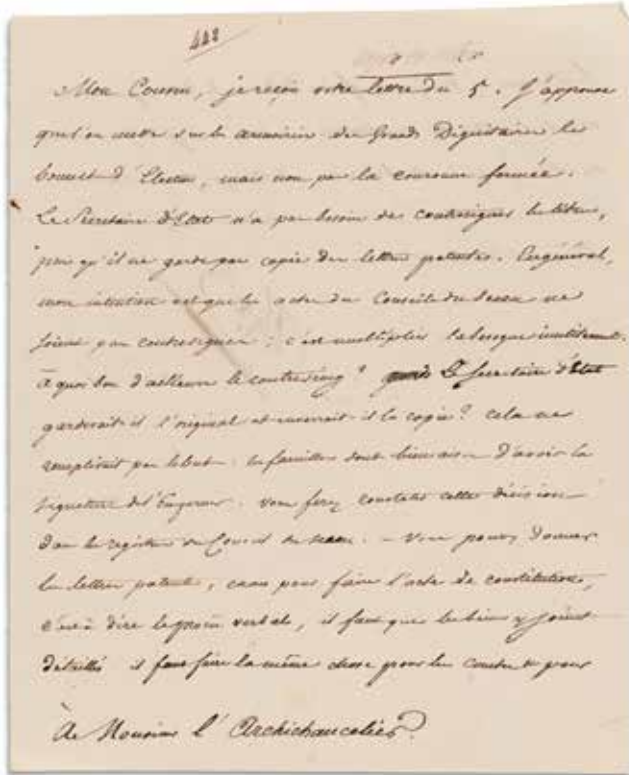 422
Mon Cousin, je reçois votre lettre du 5. J'approuve
que l'on mette sur les armoiries des Grands Dignitaires le
bonnet d'Electeur, mais non pas la couronne fermée.
Le Secrétaire d'Etat n'a pas besoin de contresigner les lettres,
puis qu'il ne garde pas copie des lettres patentes. En général,
mon intention est que les actes du Conseil du Sceau ne
soient pas contresignés; c'est multiplier la besogne inutilement.
à quoi bon d'ailleurs le contreseing? Le Secrétaire d'Etat
garderait-il l'original et enverrait-il la copie? cela ne
remplirait pas le but. les familles sont bien aises d'avoir la
signature de l'Empereur. vous ferez constater cette décision
dans les registres du Conseil du sceau. – Vous pouvez donner
les lettres patentes, mais pour faire l'acte de constitution,
c'est à dire le procès verbal, il faut que les biens y soient
détaillés il faut faire la même chose pour les comtes et pour
A Monsieur l'Archichancelier